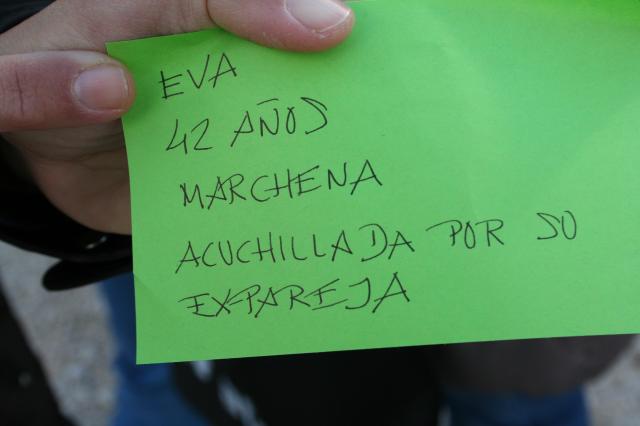 EVA
42 AÑOS
MARCHENA
ACUCHILLADA POR SU
EX-PAREJA